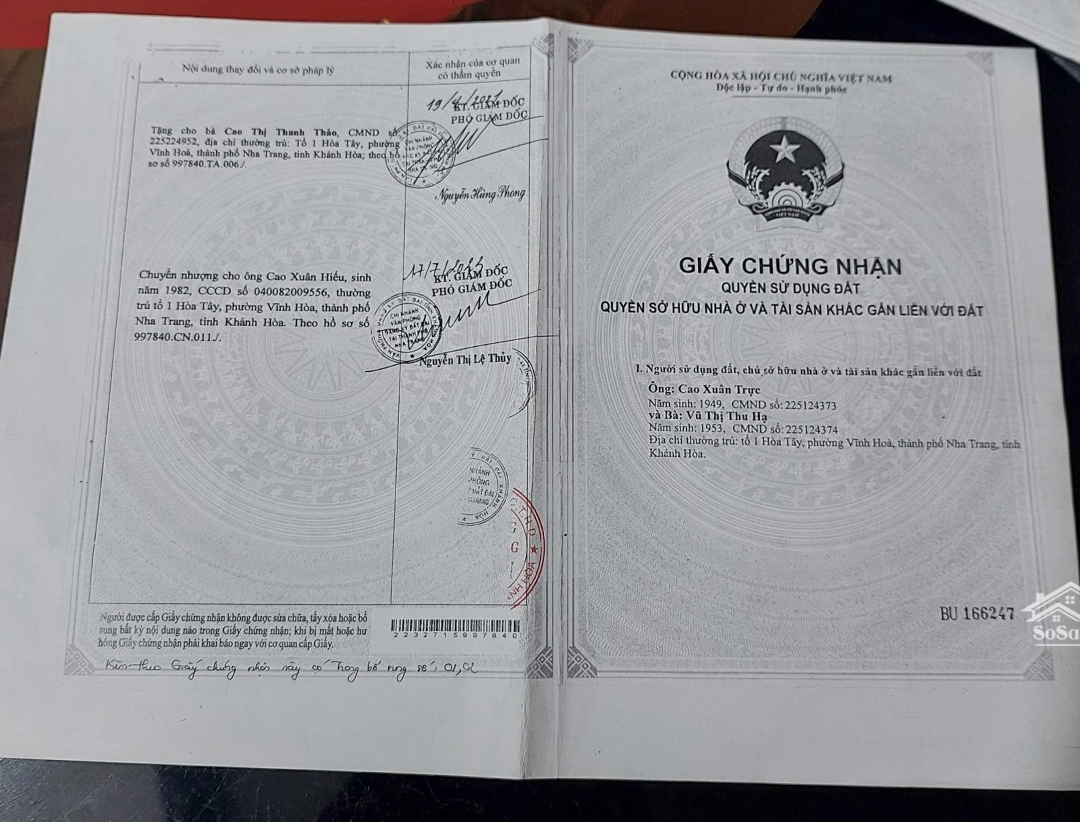 Nội dung thay đổi và cơ sở pháp lý
Xác nhận của cơ quan
có thẩm quyền
Tặng cho bà Cao Thị Thanh Thảo, CMND số
225224952, địa chỉ thường trú: Tổ 1 Hòa Tây, phường
Vĩnh Hoà, thành phố Nha Trang, tỉnh Khánh Hòa; theo hồ
sơ số 997840.TA.006./.
KT. GIÁM ĐỐC
PHÓ GIÁM ĐỐC
Nguyễn Hùng Phong
Chuyển nhượng cho ông Cao Xuân Hiếu, sinh
năm 1982, CCCD số 040082009556, thường
trú tổ 1 Hòa Tây, phường Vĩnh Hòa, thành phố
Nha Trang, tỉnh Khánh Hòa. Theo hồ sơ số
997840.CN.011./.
17/7/2023
KT. GIÁM ĐỐC
PHÓ GIÁM ĐỐC
CHI NHÁNH
VĂN PHÒNG
ĐĂNG KÝ ĐẤT ĐAI
TẠI THÀNH PHỐ
NHA TRANG
Nguyễn Thị Lệ Thủy
Người được cấp Giấy chứng nhận không được sửa chữa, tẩy xóa hoặc bổ
sung bất kỳ nội dung nào trong Giấy chứng nhận; khi bị mất hoặc hư
hỏng Giấy chứng nhận phải khai báo ngay với cơ quan cấp Giấy.
2232715997840
Kèm theo Giấy chứng nhận này có Trang bổ sung số: 01, 02
CỘNG HÒA XÃ HỘI CHỦ NGHĨA VIỆT NAM
Độc lập - Tự do - Hạnh phúc
VIỆT NAM
GIẤY CHỨNG NHẬN
QUYỀN SỬ DỤNG ĐẤT
QUYỀN SỞ HỮU NHÀ Ở VÀ TÀI SẢN KHÁC GẮN LIỀN VỚI ĐẤT
I. Người sử dụng đất, chủ sở hữu nhà ở và tài sản khác gắn liền với đất
Ông: Cao Xuân Trực
Năm sinh: 1949, CMND số: 225124373
và Bà: Vũ Thị Thu Hạ
Năm sinh: 1953, CMND số: 225124374
Địa chỉ thường trú: tổ 1 Hòa Tây, phường Vĩnh Hoà, thành phố Nha Trang, tỉnh
Khánh Hòa.
BU 166247
SoSa